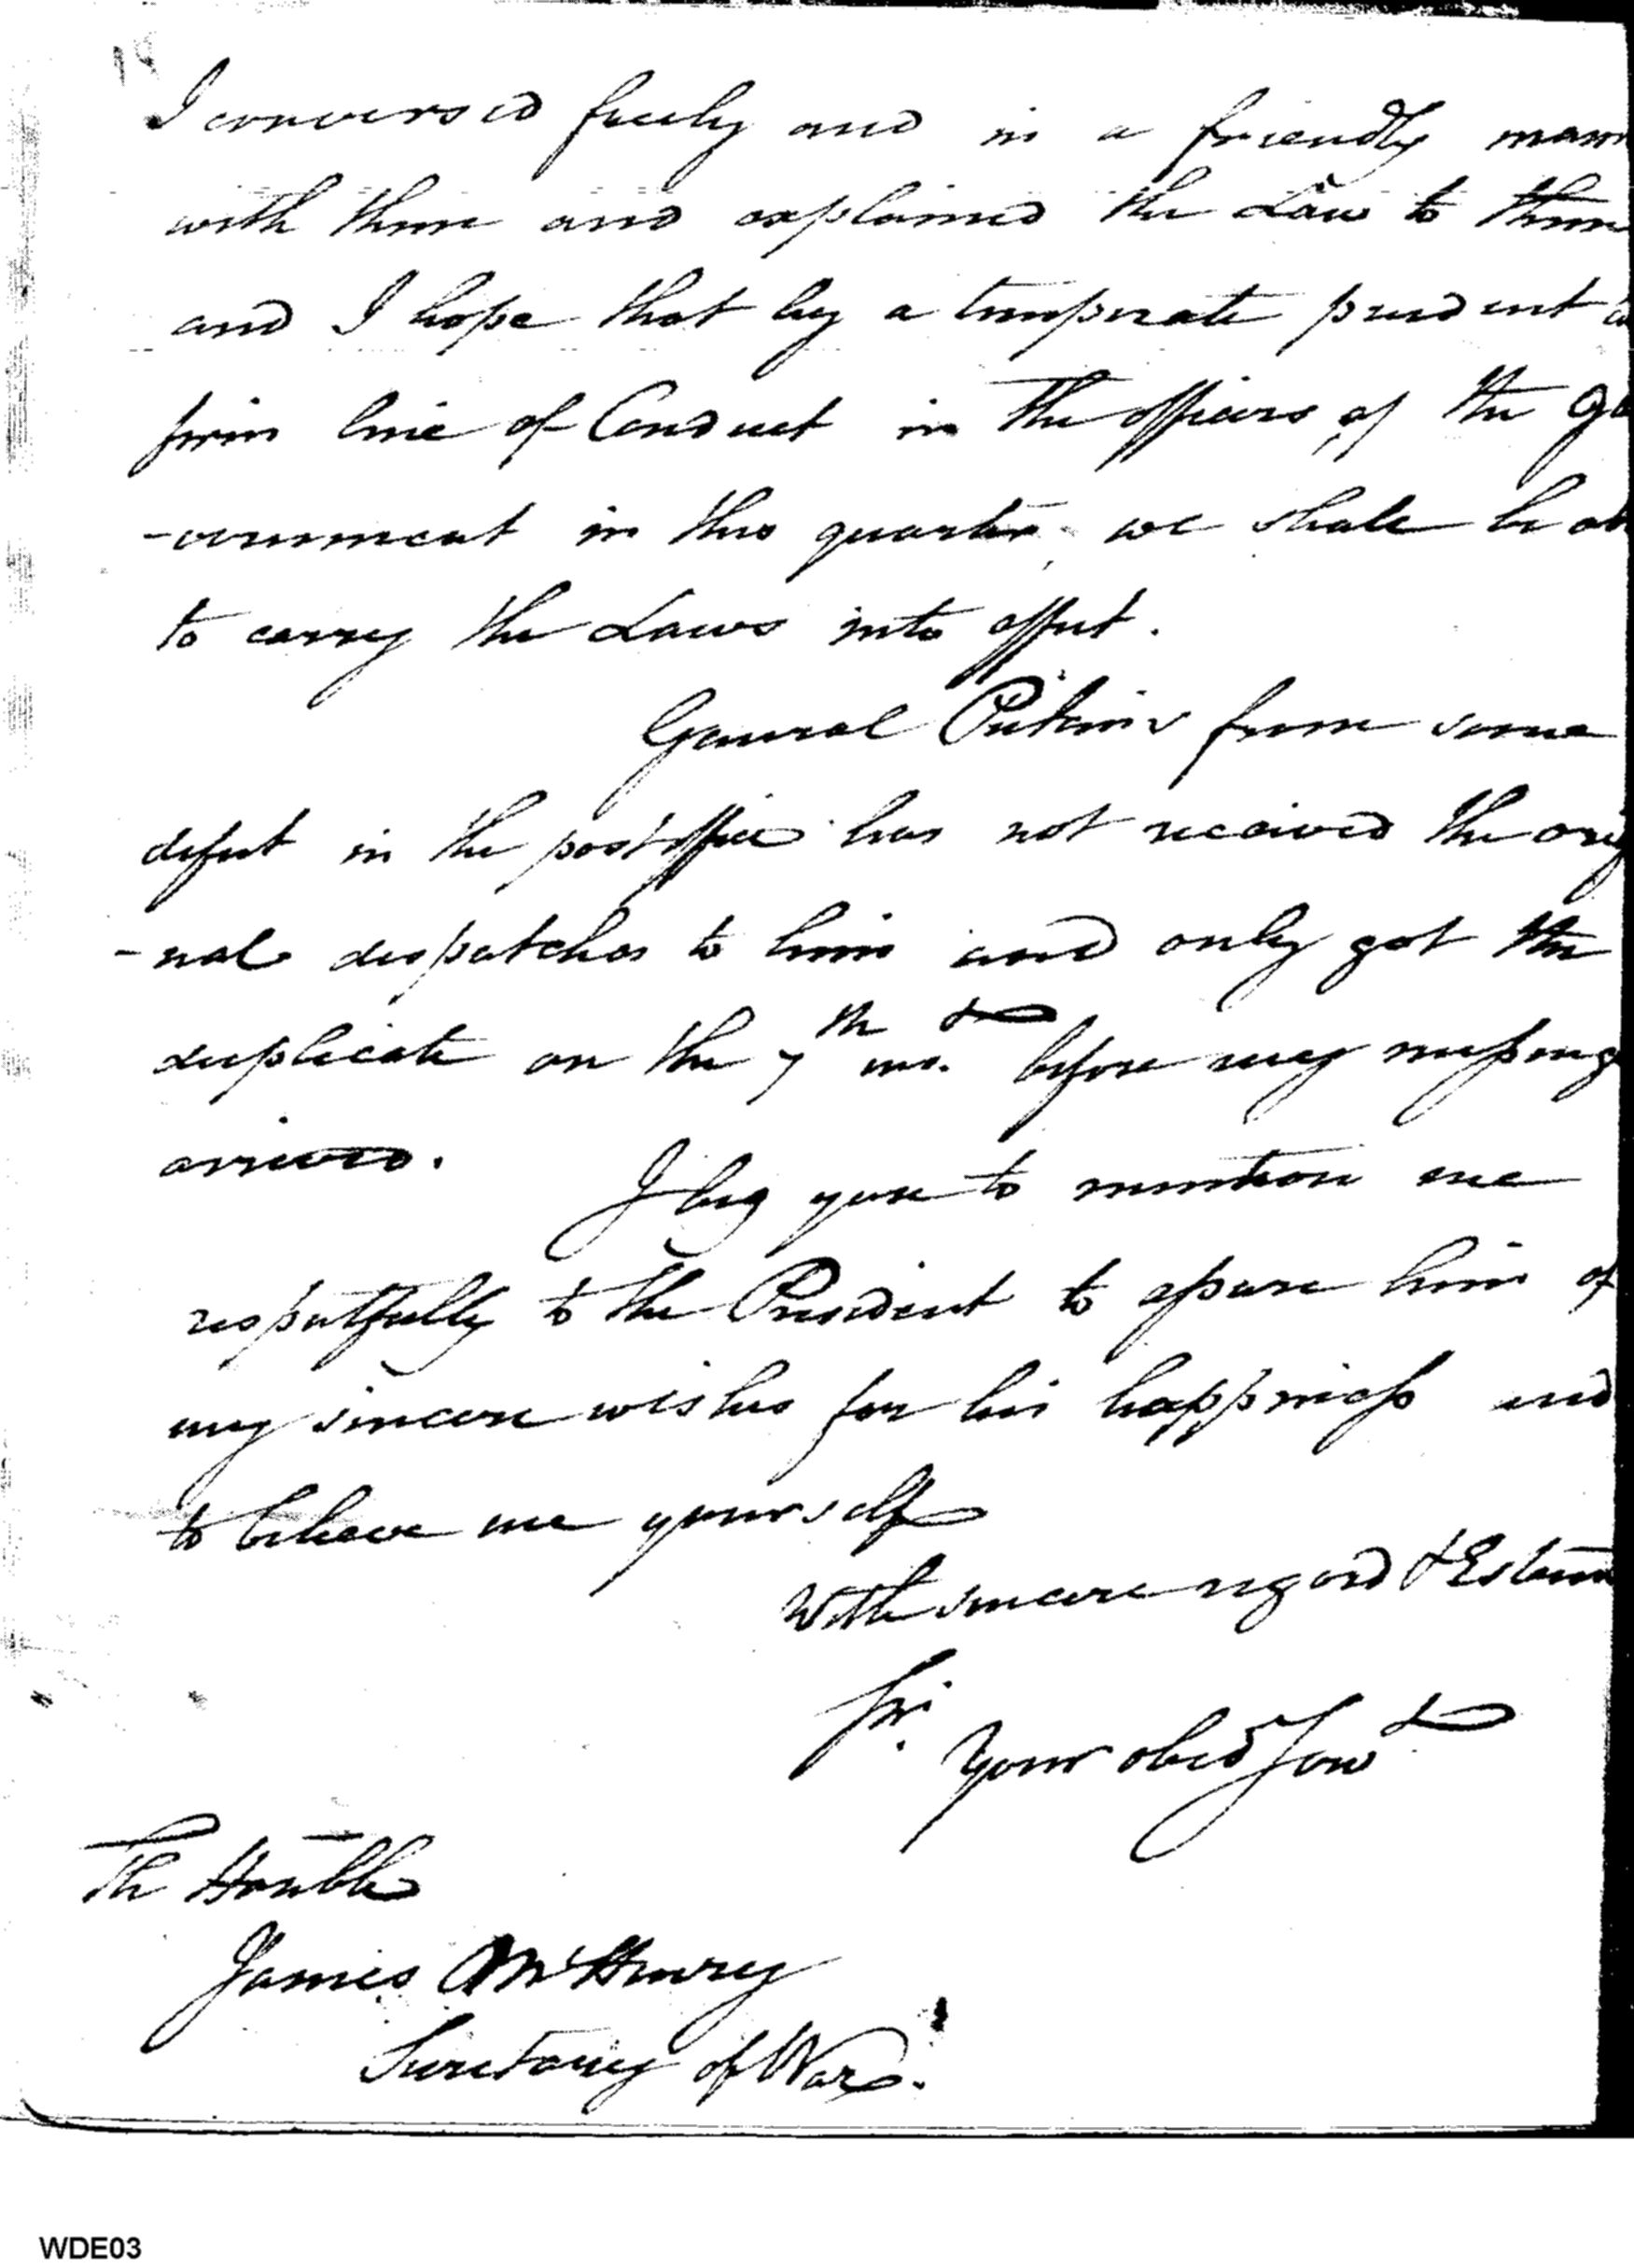 I conversed freely and in a friendly mann
with them and explained the Law to them
and I hope that by a temperate prudent
firm line of Conduct in the officers of the Go
-vernment in this quarter we shall be ab
to carry the Laws into effect.
General Pickins from some
defect in the post office has not received the orig
-nal dispatches to him and only got the
duplicate on the 7th ins. before my messeng
arrived.
I beg you to mention me
respectfully to the President to assure him of
my sincere wishes for his happiness and
to believe me yourself
With sincere regard & Esteem
Sir.
Your obed Serv
The Honble
James McHenry
Secretary of War.
WDE03